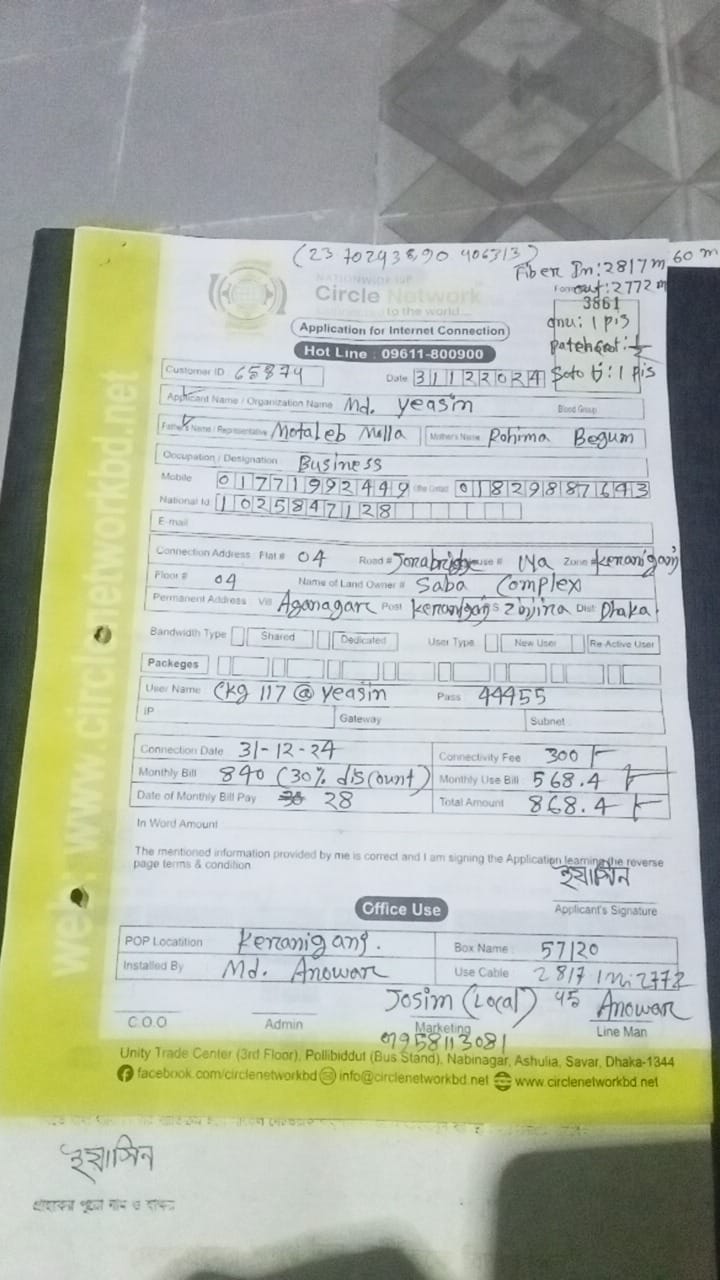 (23 70293890 406313)
Fiber In: 2817 m 60 m
out: 2772 m
NATIONWIDE ISP
Circle Network
to the world...
3861
onu: 1 pis
Application for Internet Connection
Hot Line : 09611-800900
1 pis
Customer ID 65874 Date 31122024
Applicant Name / Organization Name Md. Yeasin Blood Group
Father's Name / Representative Motaleb Molla Mother's Name Rohima Begum
Occupation / Designation Business
Mobile 01771992449 01829887643
National Id 1025847128
E-mail
Connection Address : Flat # 04 Road # Zone #
Floor # 04 Name of Land Owner # Saba Complex
Permanent Address Vill Aganagar Post Dist Dhaka
Bandwidth Type Shared Dedicated User Type New User Re-Active User
Packeges
User Name Ckg 117 @ yeasin Pass 44455
IP Gateway Subnet
Connection Date 31-12-24 Connectivity Fee 300
Monthly Bill 840 (30% discount) Monthly Use Bill 568.4
Date of Monthly Bill Pay 28 Total Amount 868.4
In Word Amount
The mentioned information provided by me is correct and I am signing the Application learning the reverse
page terms & condition
ইয়াসিন
Applicant's Signature
Office Use
POP Locatition Keranigang. Box Name : 57/20
Installed By Md. Anowar Use Cable 2817 2772
Josim (Local) 45 Anowar
C.O.O Admin Marketing Line Man
Unity Trade Center (3rd Floor), Pollibiddut (Bus Stand), Nabinagar, Ashulia, Savar, Dhaka-1344
facebook.com/circlenetworkbd info@circlenetworkbd.net www.circlenetworkbd.net
web: www.circlenetworkbd.net
ইয়াসিন